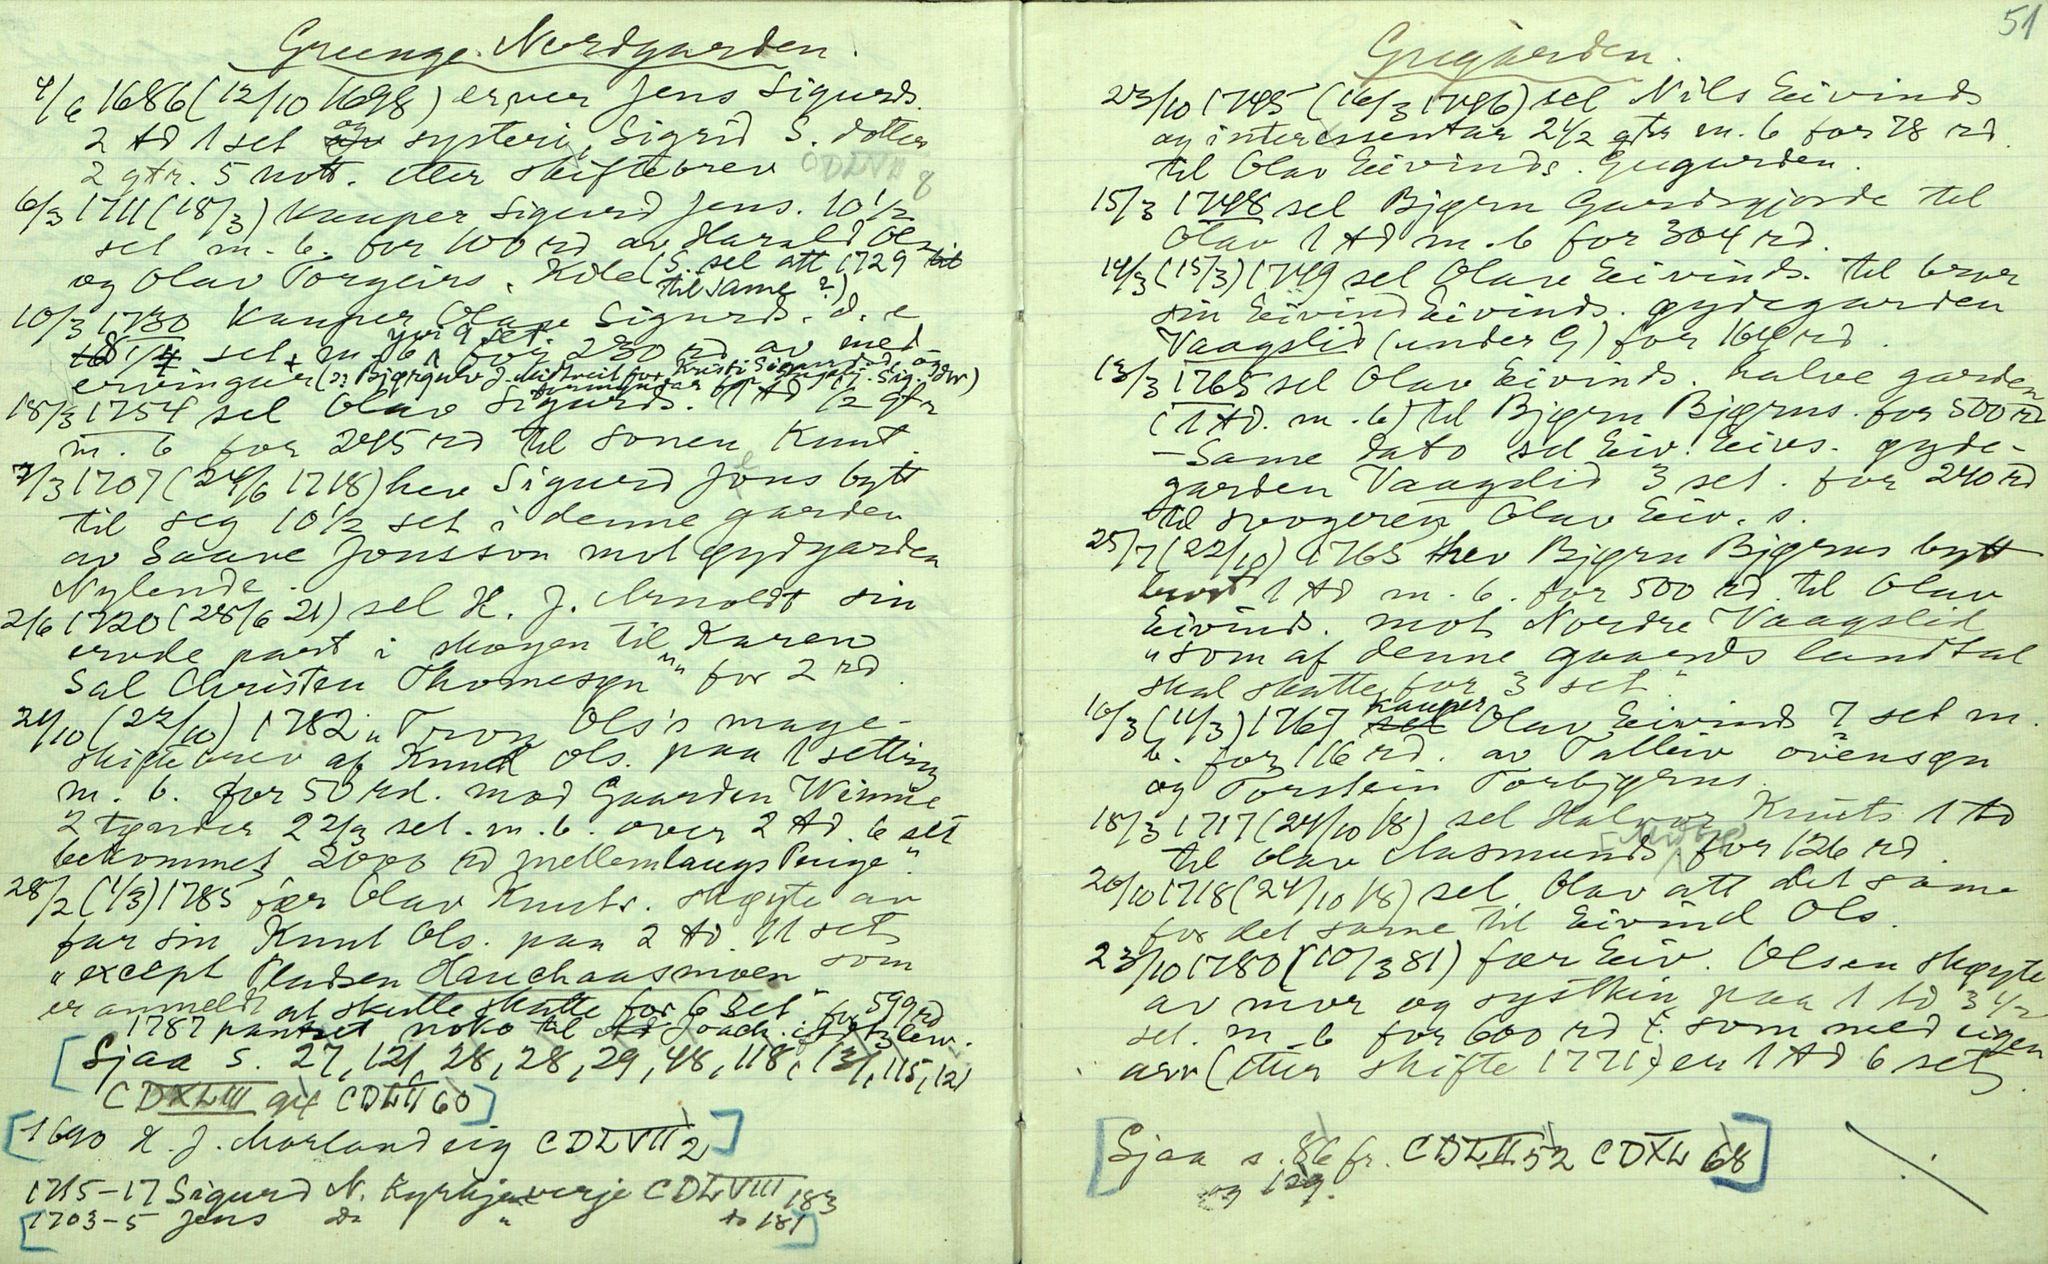 Grunge. Nordgarden.
4/6 1686 (12/10 1698) erver Jens Sigurds.
2 td 1 set og systeri, Sigrid S. dotter
2 qtr. 5 nott. etter skiftebrev CDLVII 8
6/3 1711 (18/3) kauper Sigurd Jens. 10 1/2
set m. b. for 100 rd av Harald Ols.
og Olav Torgeirs. Kile (S. sel att 1729
til same?)
10/3 1730 kauper Olav Sigurds. d. e
yvi 9 set.
1/4 set m. b. for 230 rd av med-
ervingar
18/3 1754 sel Olav Sigurds. 1 td 1/2 qtr
m. b for 245 rd til sonen Knut.
7/3 1707 (24/6 1718) hev Sigurd Jens bytt
til seg 10 1/2 set i denne garden
av Saave Jonsson mot øydgarden
Nylende.
2/6 1720 (28/6 21) sel H. J. Arnoldt sin
ervde part i skogen til "Karen
Sal Christen Thomesøn" for 2 rd.
21/10 (22/10) 1782 "Tron Ols's mage-
skiftebrev af Knud Ols. paa 1 setting
m. b. for 50 rd. mod Gaarden Winnie
2 tønder 2 2/3 set. m. b. over 2 td. 6 set
bekommet 2000 rd mellemlaugs Penge".
28/2 (1/3) 1785 fær Olav Knuts. skøyte av
far sin Knut Ols. paa 2 td. 11 set
"except Pladsen Hauchaasmoen som
er anmeldt at skulle skatte for 6 set" for 599 rd
1787 pantset noko til Joach.
[Sjaa s. 27, 121, 28, 28, 29, 48, 118, 131, 115, 121
CDXLIII 94 CDLII 60]
[1690 H. J. Morland eig CDLVII 2]
1715-17 Sigurd N. Kyrkjeverje CDLVIII 183
[1703-5 Jens do " do 181]
51
Grugarden.
23/10 1745 (16/3 1746) sel Nils Eivinds
og interessentar 2 1/2 qtr m. b for 78 rd
til Olav Eivinds. Grugarden.
15/3 1748 sel Bjørn Gardsgjorde til
Olav 1 td m. b for 304 rd.
14/3 (15/3) 1749 sel Olav Eivinds. til bror
sin Eivind Eivinds. øydegarden
Vaagslid (under G) for 164 rd.
13/3 1765 sel Olav Eivinds. halve garden
(1 td. m. b) til Bjørn Bjørns. for 500 rd
- Same dato sel Eiv. Eivs. øyde-
garden Vaagslid 3 set. for 240 rd
til svogeren Olav Eiv. s.
25/7 (22/10) 1765 hev Bjørn Bjørns bytt
burt 1 td m. b. for 500 rd. til Olav
Eivinds. mot Nordre Vaagslid
"som af denne gaards landtal
skal skatte for 3 set".
10/3 (11/3) 1767 kauper Olav Eivinds 7 set m.
b. for 116 rd. av Talleiv ovensøn
og Torstein Torbjørns.
18/3 1717 (24/10 18) sel Halvor Knuts 1 td
til Olav Aasmunds for 126 rd.
20/10 1718 (24/10 18) sel Olav att det same
for det same til Eivind Ols.
23/10 1780 (10/3 81) fær Eiv. Olsen skøyte
av mor og systkin paa 1 td 3 1/2
set. m. b for 600 rd som med eigen
arv (etter skifte 1771) er 1 td 6 set.
[Sjaa s. 86 fr. CDLII 52 CDXL 68]
og 129.